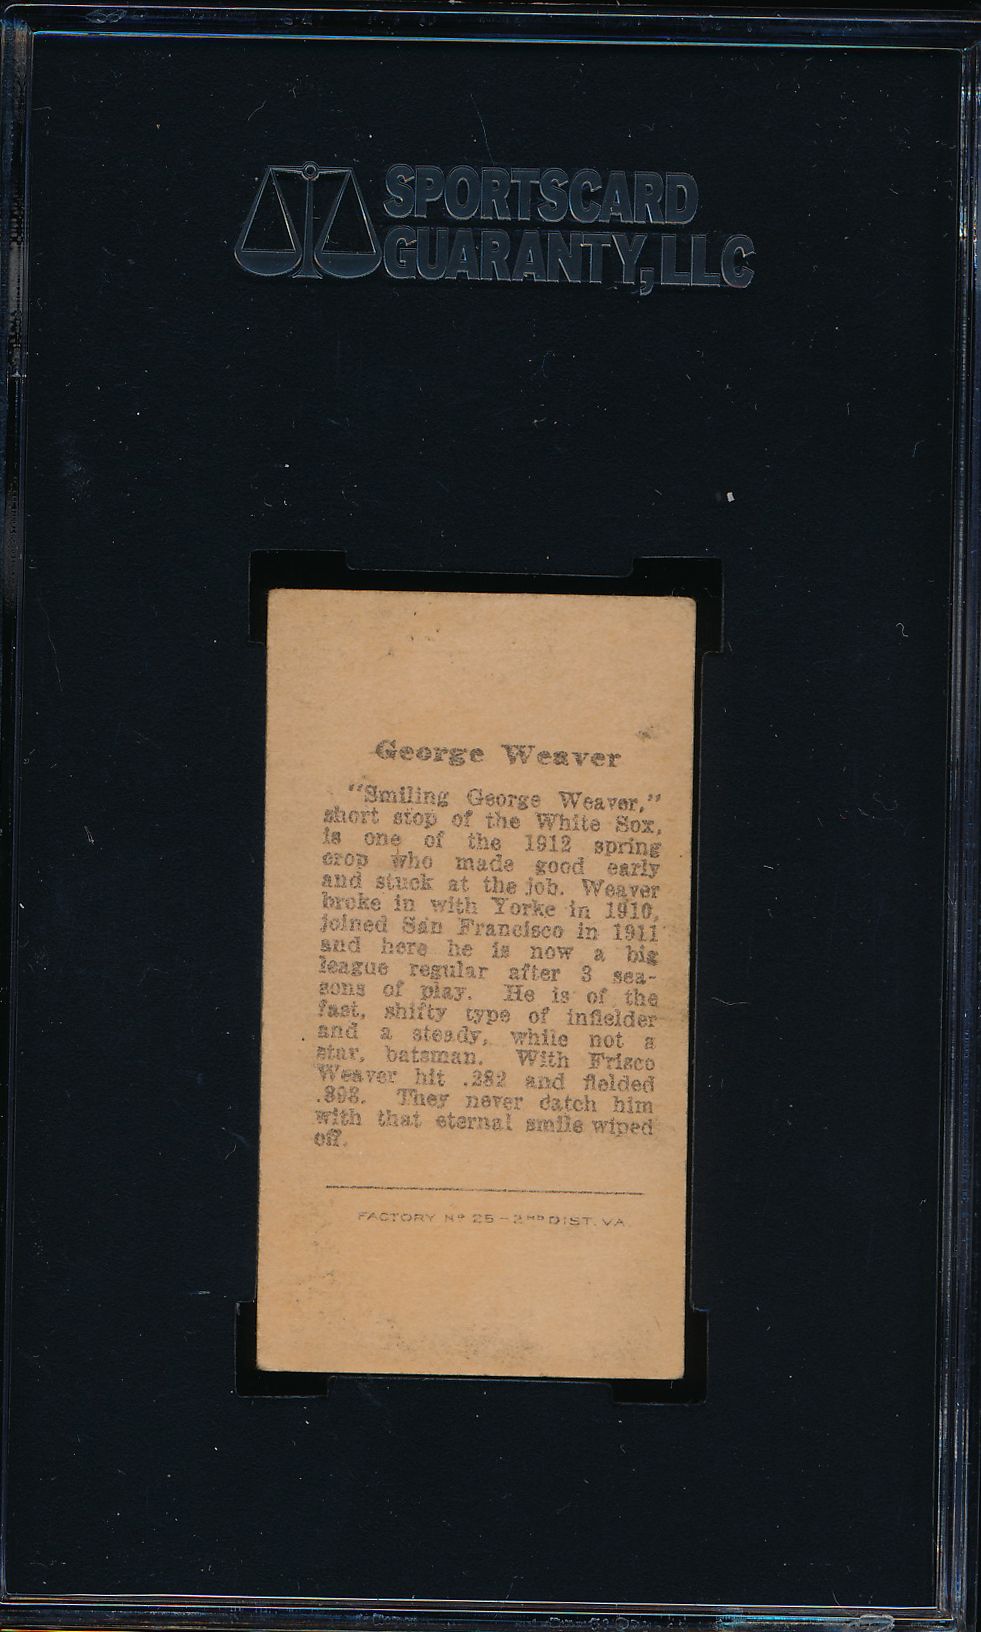 SPORTSCARD
GUARANTY, LLC
George Weaver
"Smiling George Weaver,"
short stop of the White Sox,
is one of the 1912 spring
crop who made good early
and stuck at the job. Weaver
broke in with Yorke in 1910,
joined San Francisco in 1911
and here he is now a big
league regular after 3 sea-
sons of play. He is of the
fast, shifty type of infielder
and a steady, while not a
star, batsman. With Frisco
Weaver hit .282 and fielded
They never catch him
with that eternal smile wiped
off.
FACTORY Nº 25 - 2ND DIST. VA.